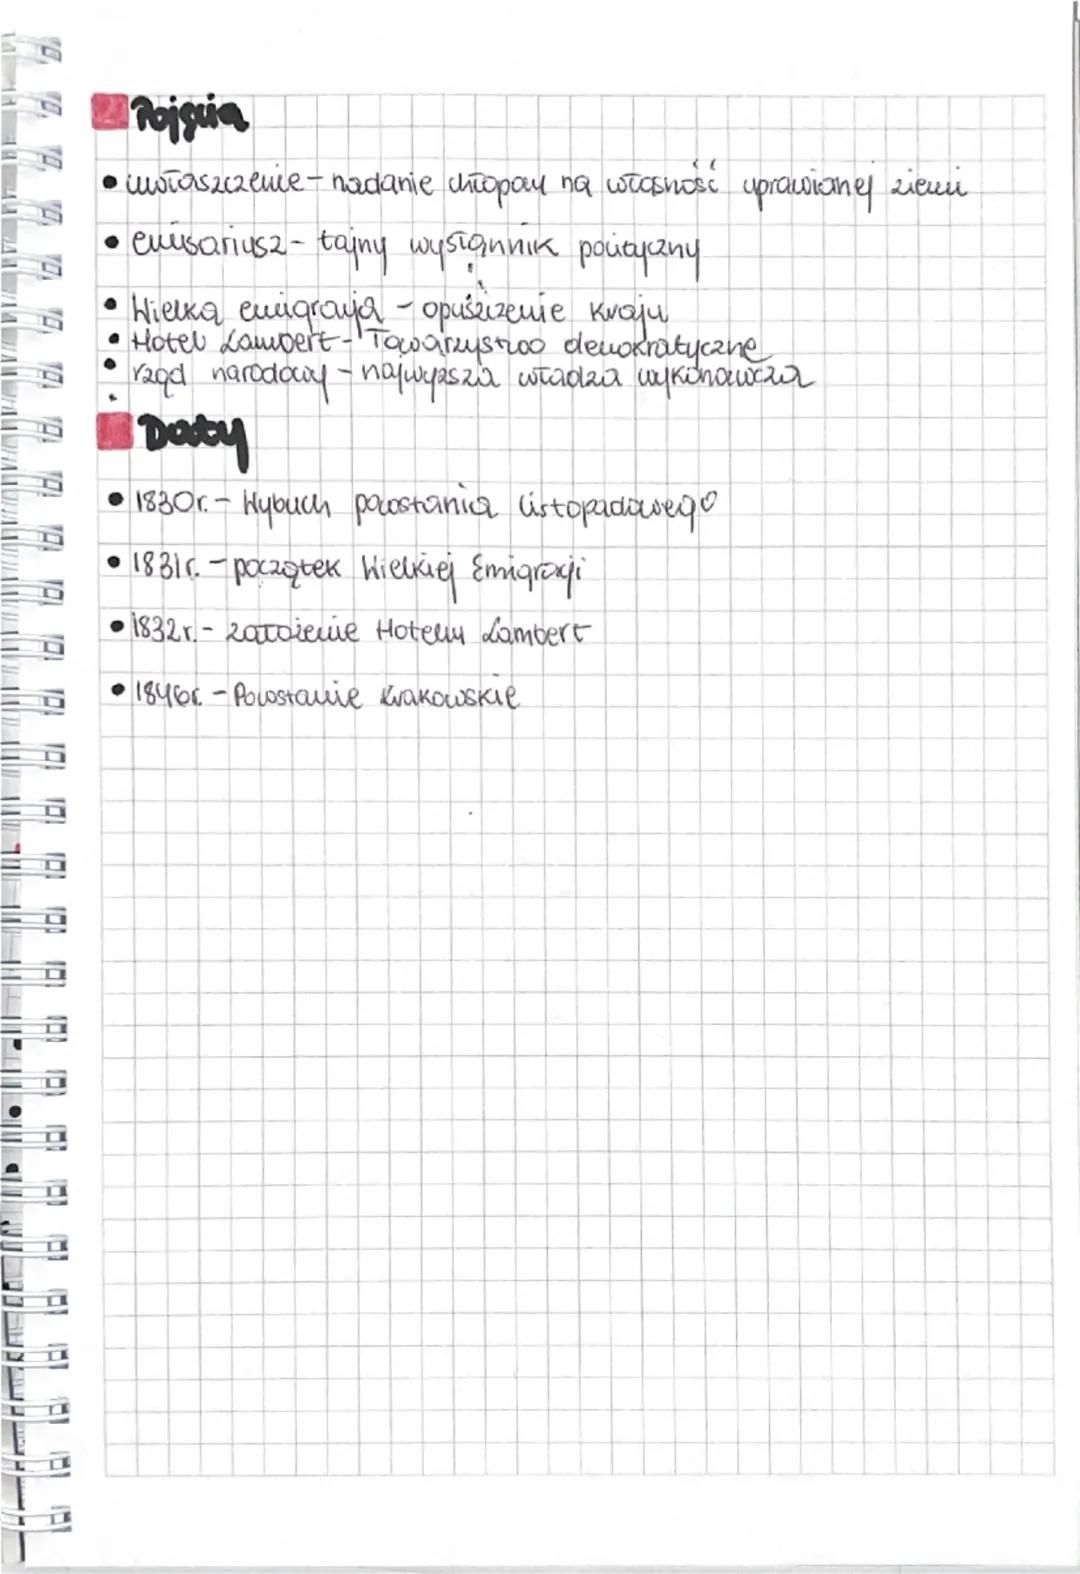 Pojęcia
• uwłaszczenie - nadanie chłopom na własność uprawianej ziemi
• emisariusz - tajny wysłannik polityczny
• Wielka emigracja - opuszczenie kraju
• Hotel Lambert - Towarzystwo demokratyczne
• rząd narodowy - najwyższa władza wykonawcza
Daty
• 1830r. - Wybuch powstania listopadowego
• 1831r. - początek Wielkiej Emigracji
• 1832r. - założenie Hotelu Lambert
• 1846r. - Powstanie Krakowskie